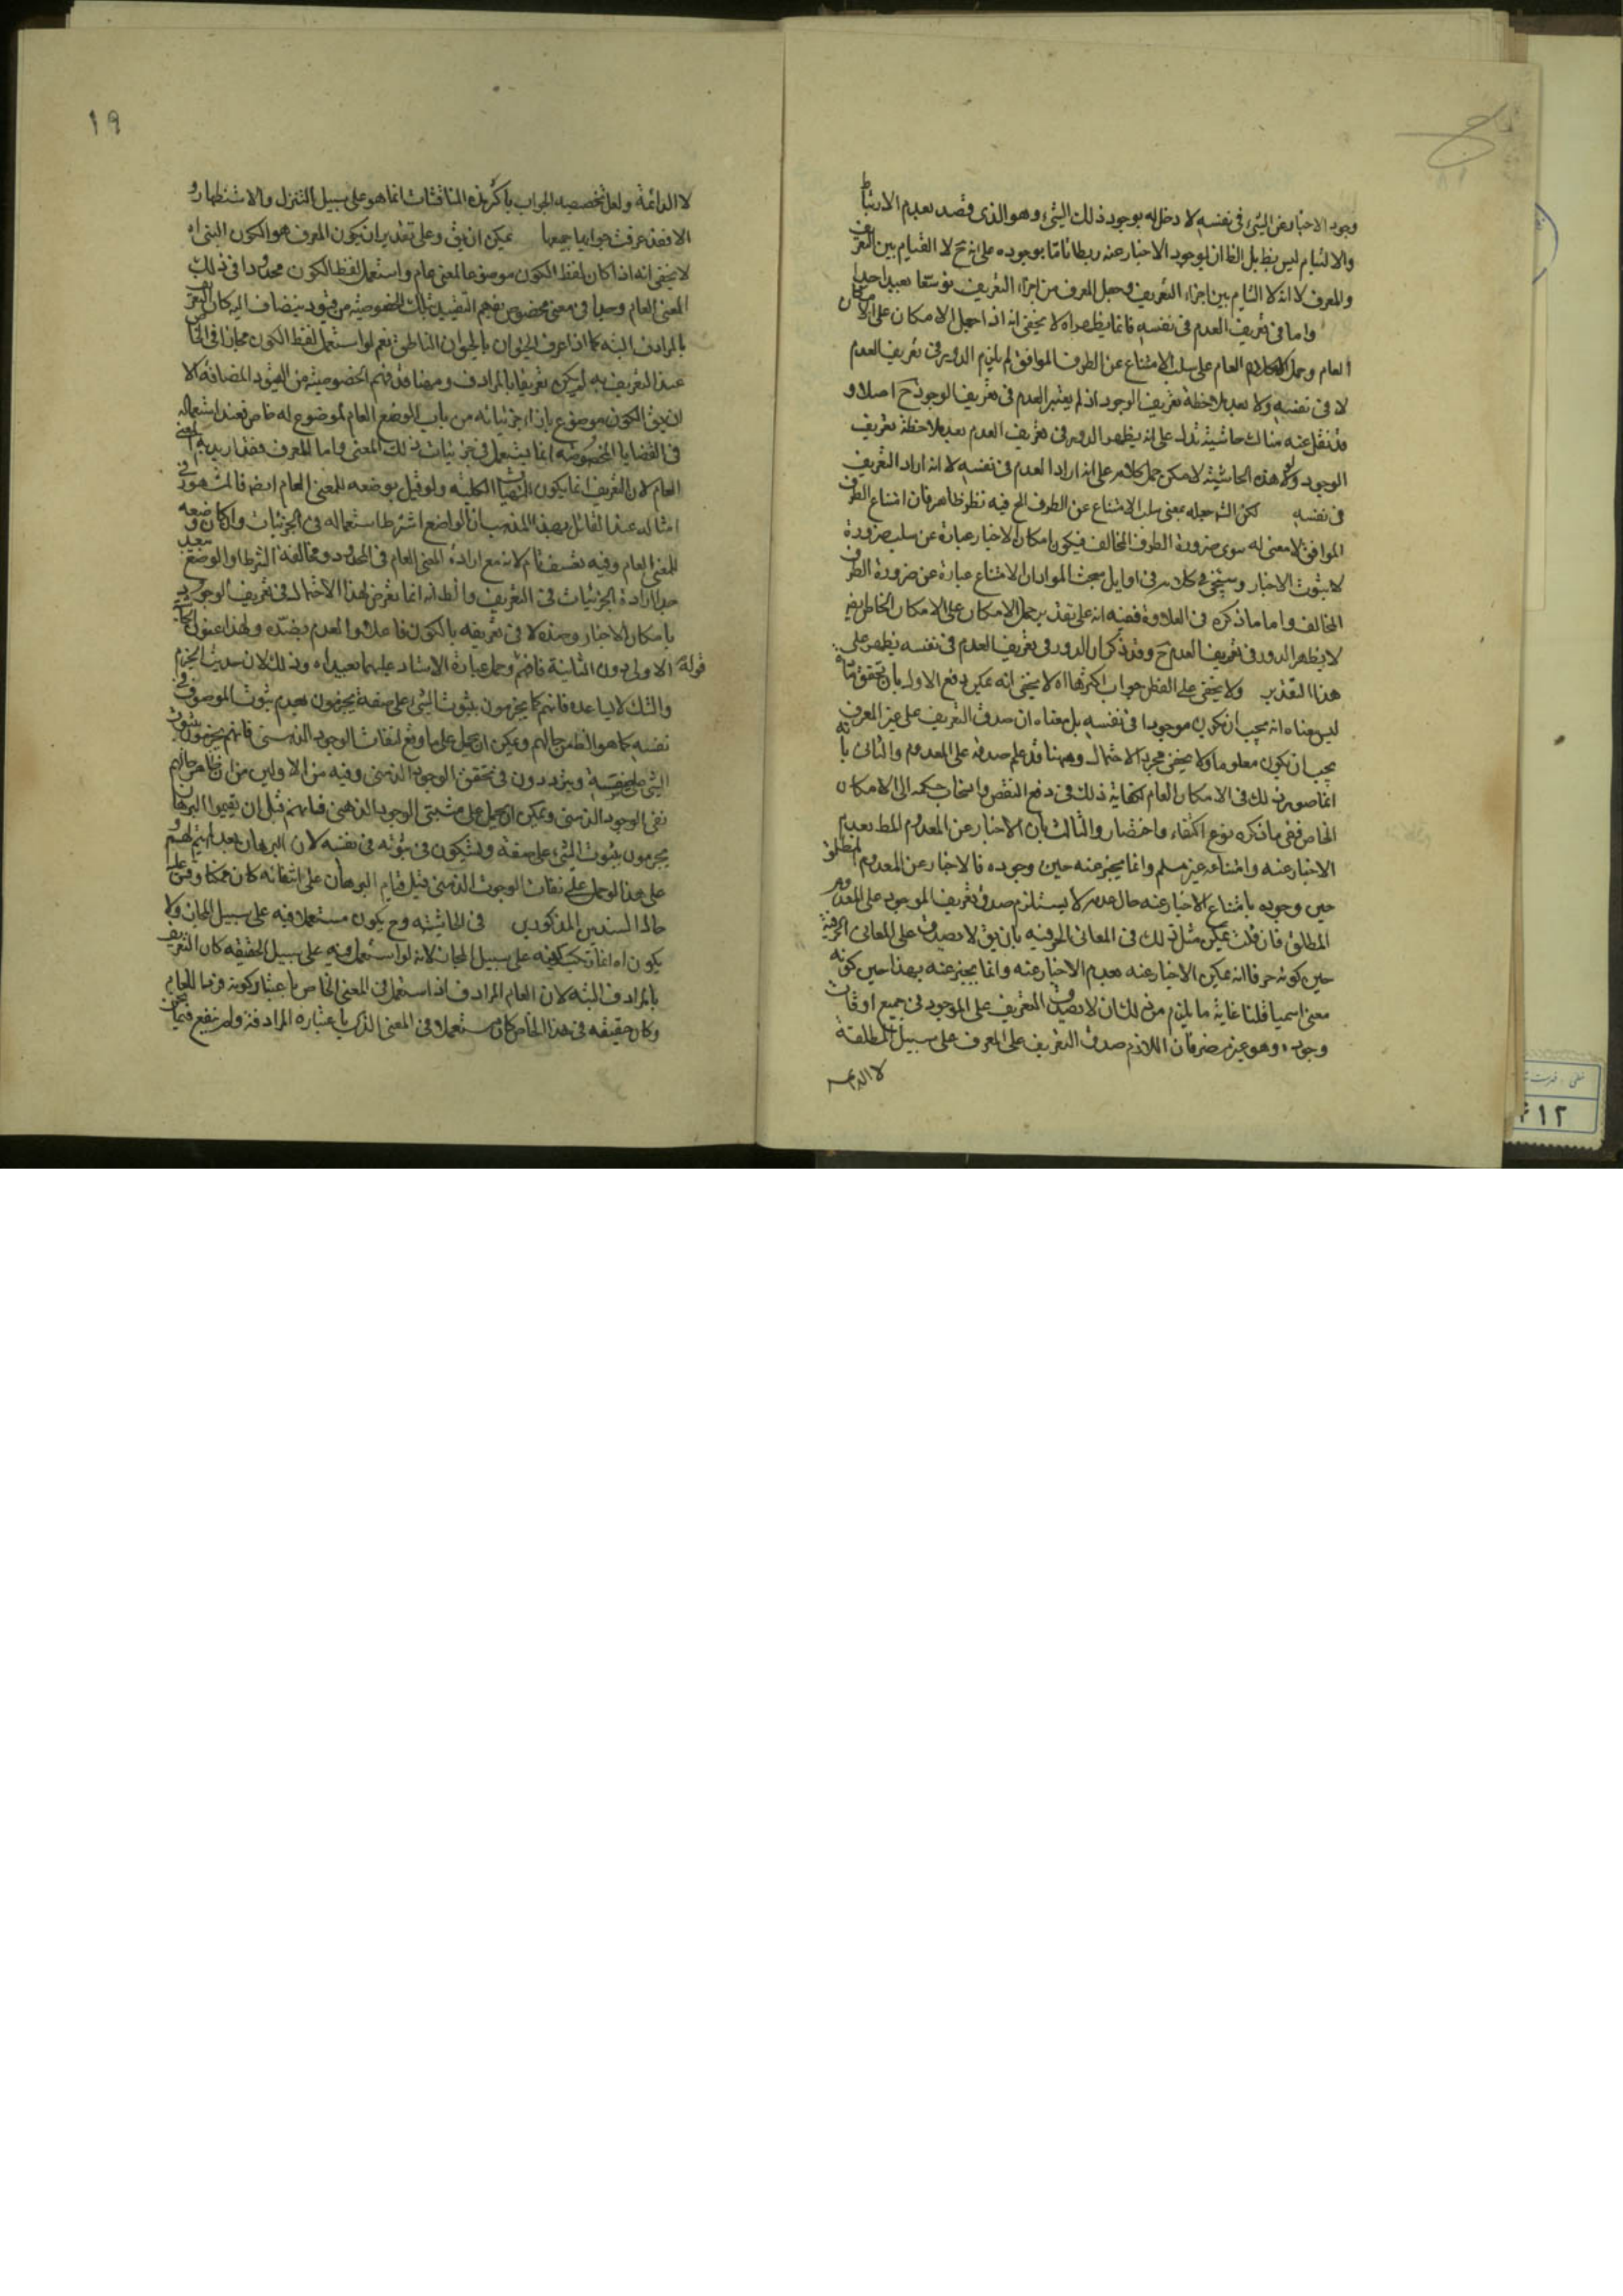 وجود الاخبار عن الشئ فى نفسه لا دخل له بوجود ذلك الشئ وهو الذى قصد بعدم الارتباط
والالتيام ليس بظ بل الظ ان لوجود الاخبار عنه ربطا تاما بوجوده على انه ح لا القيام بين التعريف
والمعرف لا انه لا التيام بين اجزاء التعريف وجعل المعرف من اجزاء التعريف توسعا بعيد جدا
واما فى تعريف العدم فى نفسه فانما يظهر اه لا يخفى انه اذا حمل الامكان على الامكان
العام وحمل الامكان العام على سلب الامتناع عن الطرف الموافق لم يلزم الدور فى تعريف العدم
لا فى نفسه ولا بعد ملاحظة تعريف الوجود اذ لم يعتبر العدم فى تعريف الوجود ح اصلا و
قد نقل عنه هناك حاشية تدل على انه يظهر الدور فى تعريف العدم بعد ملاحظة تعريف
الوجود ولو لا هذه الحاشية لامكن حمل كلامه على انه اراد العدم فى نفسه لا انه اراد التعريف
فى نفسه لكن الش جعله بمعنى سلب الامتناع عن الطرف الخ فيه نظر ظاهر فان امتناع الطرف
الموافق لا معنى له سوى ضرورة الطرف المخالف فيكون امكان الاخبار عبارة عن سلب ضرورة
لا ثبوت الاخبار وسيجئ فى كلامه فى اوايل مبحث المواد ان الامتناع عبارة عن ضرورة الطرف
المخالف واما ما ذكره فى العلاوة ففيه انه على تقدير حمل الامكان على الامكان الخاص ايض
لا يظهر الدور فى تعريف العدم ح وقد ذكر ان الدور فى تعريف العدم فى نفسه يظهر على
هذا التقدير ولا يخفى على الفطن جواب اكثرها اه لا يخفى انه يمكن دفع الاول بان تحقق
ليس معناه انه يجب ان يكون موجودا فى نفسه بل معناه ان صدق التعريف على غير المعرف
يجب ان يكون معلوما ولا يكفى مجرد الاحتمال وههنا قد علم صدقه على المعدوم والثانى بانه
انما صور ذلك فى الامكان العام لكفاية ذلك فى دفع النقض وانسحاب حكمه الى الامكان
الخاص ففى ما ذكره نوع اكتفاء واختصار والثالث بان الاخبار عن المعدوم المط بعدم
الاخبار عنه وامتناعه غير مسلم وانما يخبر عنه حين وجوده فالاخبار عن المعدوم المطلق
حين وجوده بامتناع الاخبار عنه حال عدمه لا يستلزم صدق تعريف الموجود على المعدوم
المطلق فان قلت يمكن مثل ذلك فى المعانى الحرفيه بان يق لا يصدق على المعانى الحرفية
حين كونه حرفا انه يمكن الاخبار عنه بعدم الاخبار عنه وانما يخبر عنه بهذا حين كونه
معنى اسميا قلنا غاية ما يلزم من ذلك ان لا يصدق التعريف على الموجود فى جميع اوقات
وجوده وهو غير مضر فان اللازم صدق التعريف على المعرف على سبيل المطلقة
لا الدائمة
١٩
لا الدائمة ولعل تخصيصه الجواب باكثر هذه المناقشات انما هو على سبيل التنزل والاستظهار و
الا فقد عرفت جوابها جميعها يمكن ان يق وعلى تقدير ان يكون المعرف هو الكون البته اه
لا يخفى انه اذا كان لفظ الكون موضوعا لمعنى عام واستعمل لفظ الكون مجردا فى ذلك
المعنى العام وحده فى معنى مخصوص بفهم التقييد بتلك الخصوصية من قيود ينضاف اليه كان التعريف
بالمرادف البته كما اذا عرف الحيوان بالحيوان الناطق نعم لو استعمل لفظ الكون مجازا فى الخاص
عند التعريف به لم يكن تعريفا بالمرادف فهم الخصوصية من القيود المضافة الا
ان يق الكون موضوع بازاء جزئياته من باب الوضع العام لموضوع له خاص فعند استعماله
فى القضايا المخصوصة انما يستعمل فى جزئيات ذلك المعنى واما المعرف فقد اريد به المعنى
العام لان التعريف انما يكون للماهيات الكلية ولو قيل بوضعه للمعنى العام ايض فالمشهور فى
امثاله عند القائل بهذا المذهب ان الواضع اشترط استعماله فى الجزئيات وان كان وضعه
للمعنى العام وفيه تعسف تام لانه مع ارادة المعنى العام فى الحدود ومخالفة الشرط او الوضع بعيد
جدا ارادة الجزئيات فى التعريف والظ انه انما تعرض لهذا الاحتمال فى تعريف الوجود
بامكان الاخبار وعدمه لا فى تعريفه بالكون فاعلا والعدم بضده ولهذا عنون الحاشية
قوله الاولى دون الثانية فافهم وحمل عبارة الاستاد عليهما بعيد اه وذلك لان حديث الجزم
والشك لا يساعده فانهم كما يجزمون بثبوت الشئ على صفة يجزمون بعدم ثبوت الموصوف فى
نفسه كما هو الظ من حالهم ويمكن ان يحمل على ما وقع لنفات الوجود الذهنى فانهم يجزمون بثبوت
الشئ على صفة ويترددون فى تحقق الوجود الذهنى وفيه من الاولين من ان ظاهر حالهم
نفى الوجود الذهنى ويمكن ان يحمل على مثبتى الوجود الذهنى فانهم قبل ان يقيموا البرهان
يجزمون بثبوت الشئ على صفة ويشكون فى ثبوته فى نفسه لان البرهان بعد لم يتم لهم و
على هذا لو حمل على نفات الوجود الذهنى قبل قيام البرهان على انتفائه كان ممكنا وقس عليه
حال السندين المذكورين فى الحاشية وح يكون مستعملا فيه على سبيل المجاز ولا
يكون اه انما كونه على سبيل المجاز لانه لو استعمل فيه على سبيل الحقيقه كان التعريف
بالمرادف البته لان العام المرادف اذا استعمل فى المعنى الخاص باعتبار كونه فردا للعام
وكان حقيقه فى هذا الخاص كان مستعملا فى المعنى الذى باعتباره المرادفة ولم ينفع فيما نحن